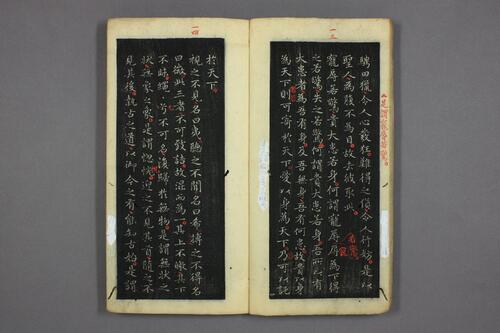 一三
是謂寵辱若驚
騁田獵令人心發狂難得之貨令人行妨是以
聖人為腹不為目故去彼取此
寵辱若驚貴大患若身何謂寵辱辱為下得
之若驚失之若驚何謂貴大患若身吾所以有
大患者為吾有身吾無身吾有何患故貴以身
為天下則可寄於天下愛以身為天下乃可以託
一四
於天下
視之不見名曰夷聽之不聞名曰希搏之不得名
曰微此三者不可致詰故混而為一其上不皦其下
不昧繩〻兮不可名復歸於無物是謂無狀之
狀無象之象是謂惚恍迎之不見其首隨之不
見其後執古之道以御今之有能知古始是謂